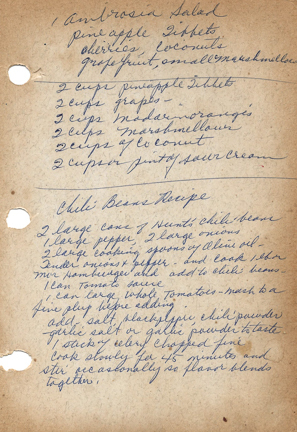 1 Ambrosia Salad
pineapple Tibbets
cherries, Coconuts
grapefruit, small marshmellows
2 cups pineapple Tibbets
2 cups grapes -
2 cups Madarin oranges
2 cups Marshmellows
2 cups of Coconut
2 cups or pint of sour cream
Chili Beans Recipe
2 large cans of Hunts chili bean
1 large pepper, 2 large onions
2 large cooking spoons of Olive oil -
onions & pepper - and cook 1 hr or
more Hamburger and add to chili beans
1 can Tomato sauce
1 can large whole Tomatoes - mash to a
fine before adding -
add salt, black pepper chili powder
garlic salt or garlic powder to taste
1 stick of celery chopped fine
Cook slowly for 45 minutes and
stir occasionally so flavor blends
together.